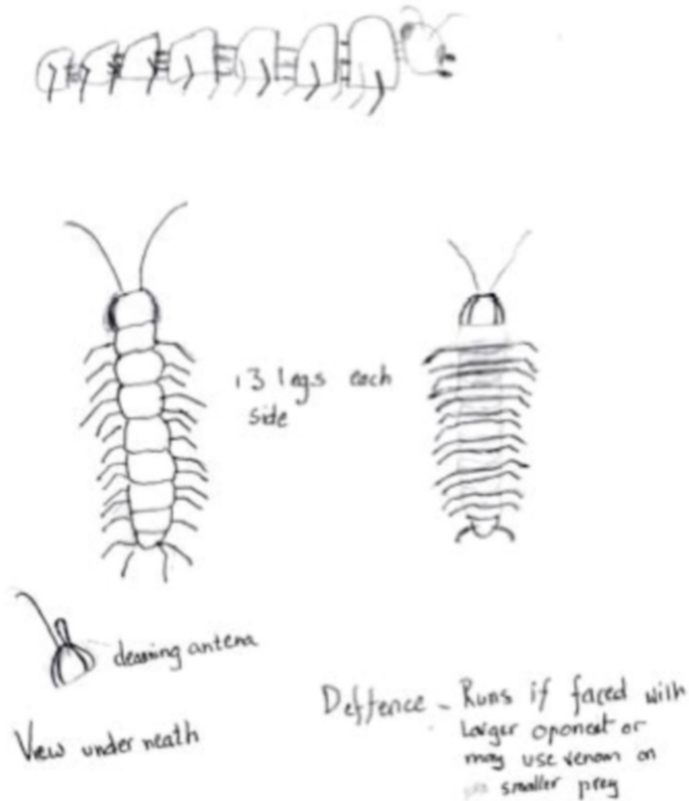 13 legs each
side
cleaning antena
View underneath
Deffence - Runs if faced with
larger oponent or
may use venom on
smaller prey